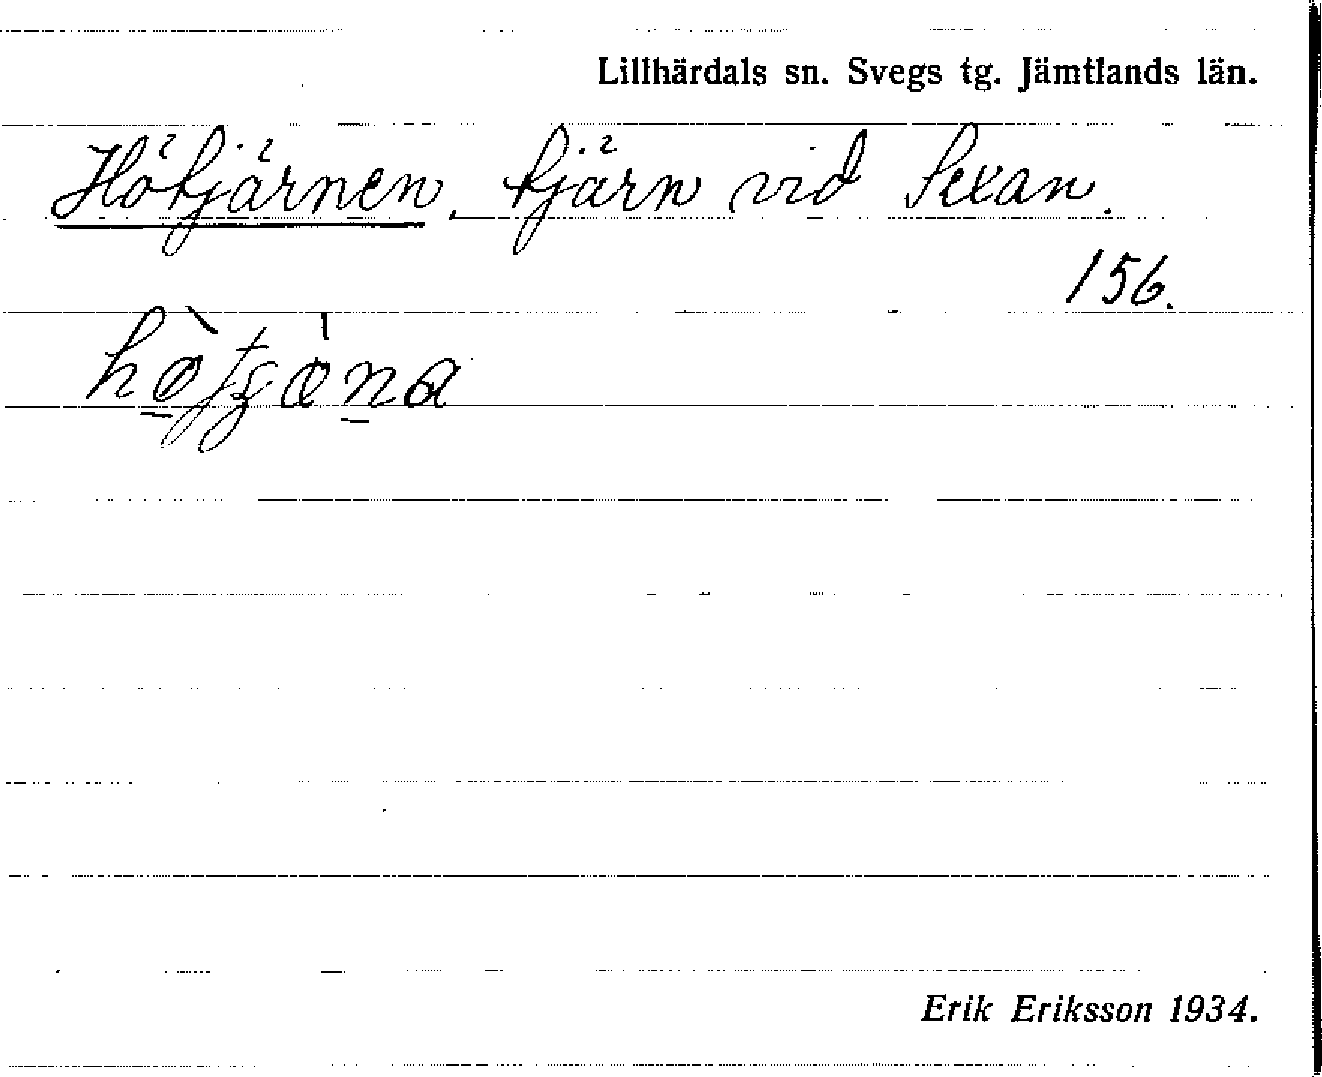 Lillhärdals sn. Svegs tg. Jämtlands län.
Hötjärnen, tjärn vid Sexan.
156.
Erik Eriksson 1934.